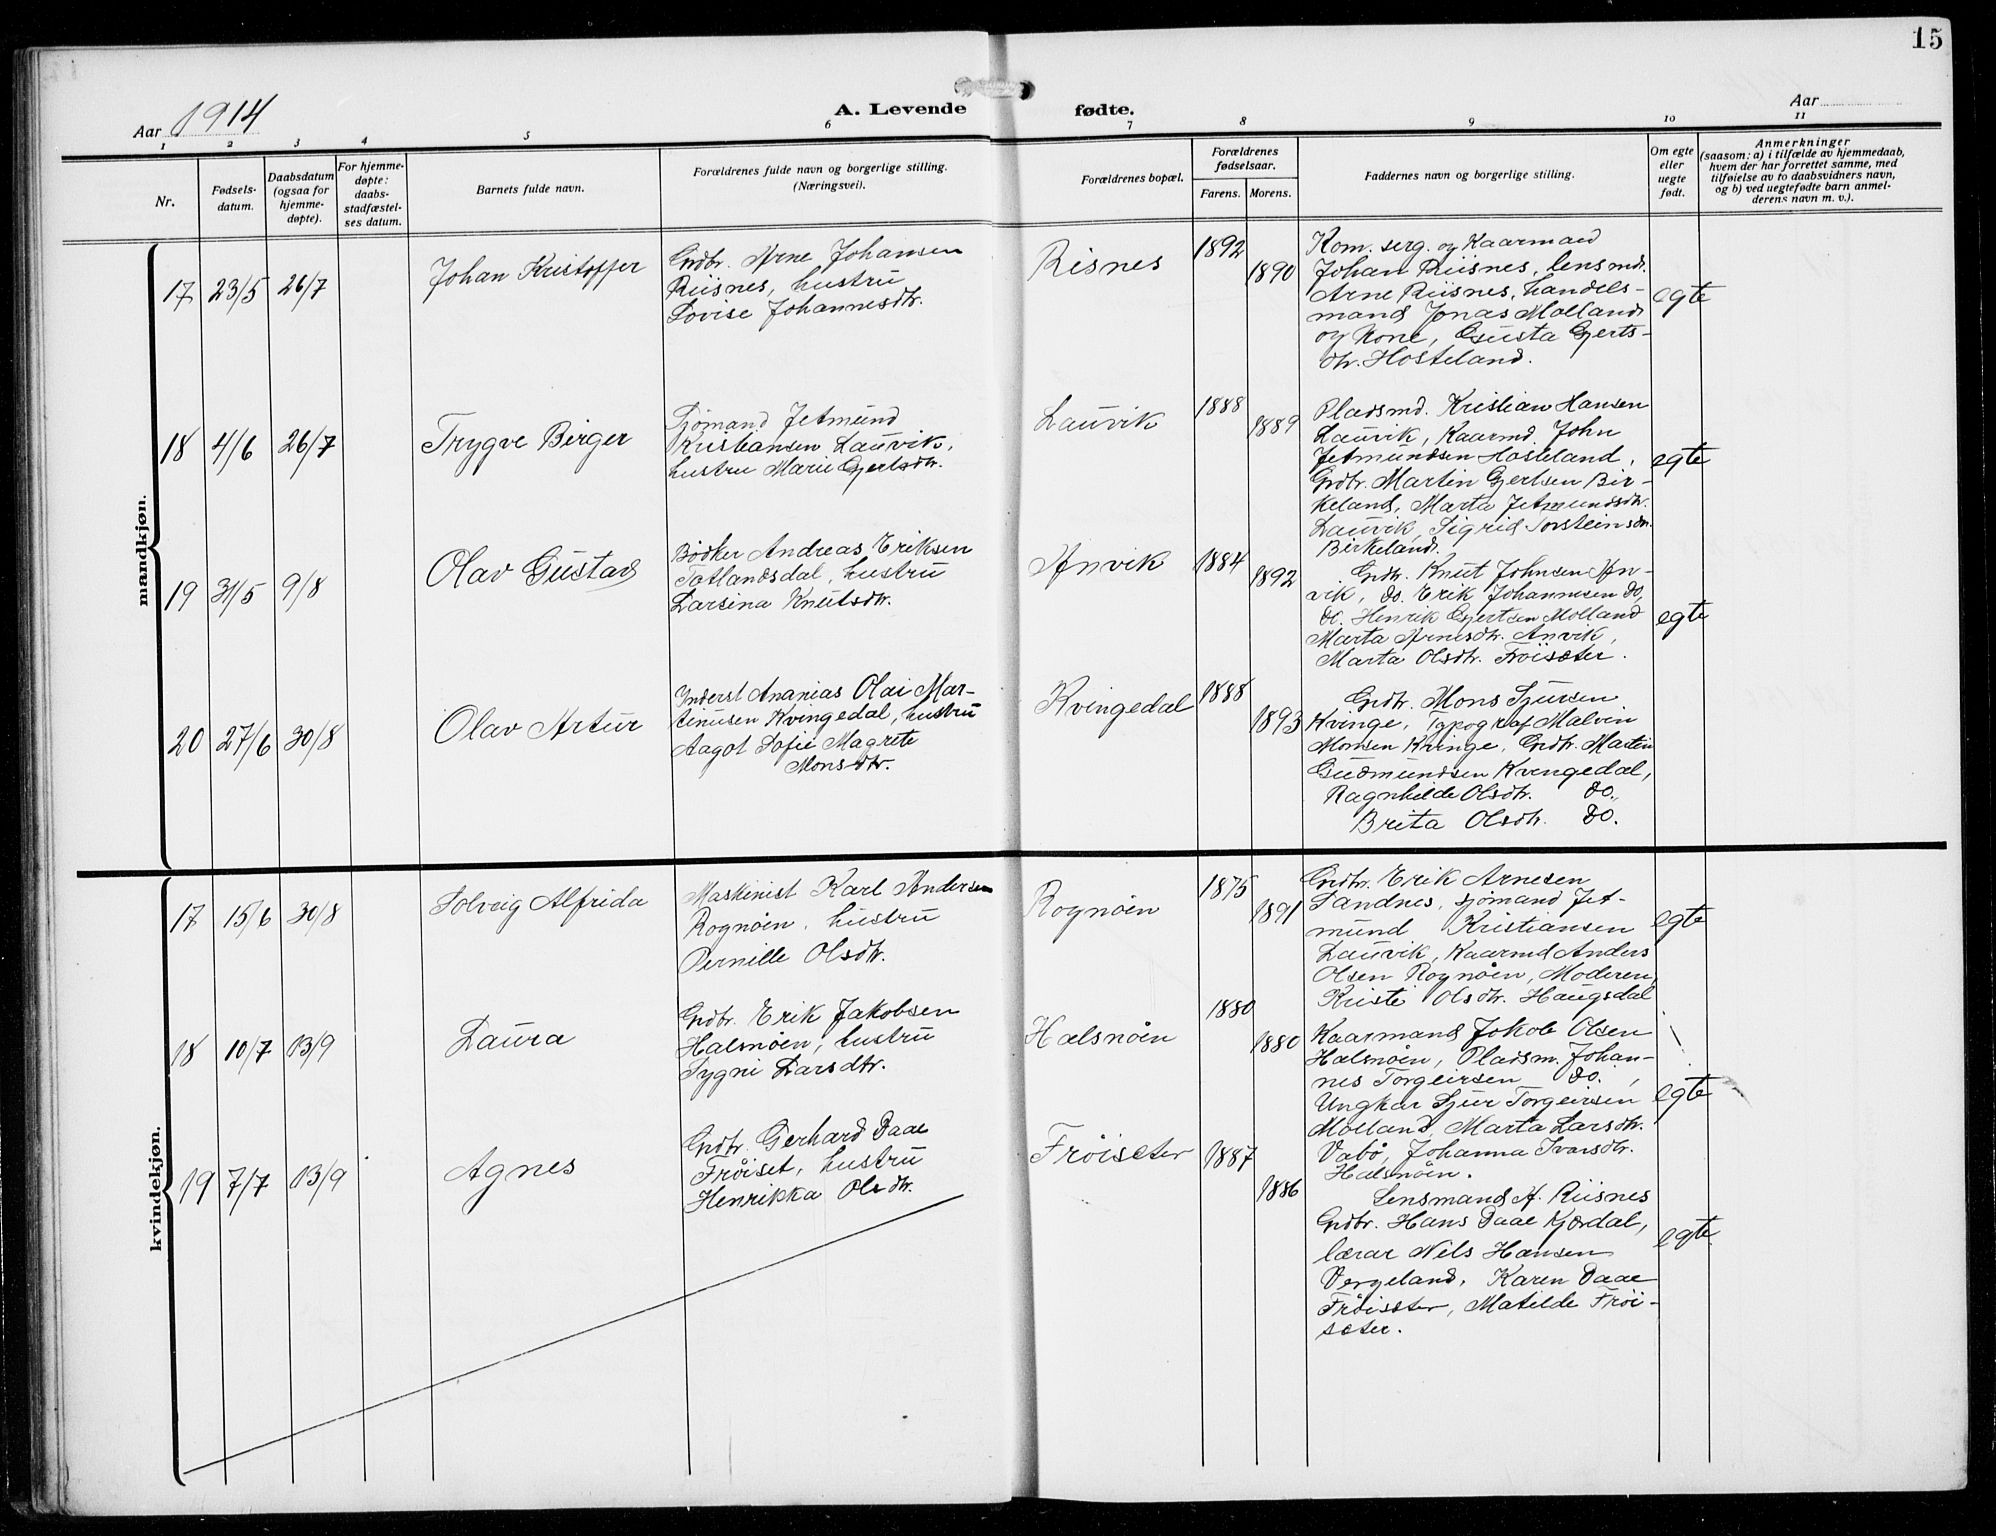 15
Aar 1914
A. Levende fødte.
Aar
1 2 3 4 5 6 7 8 9 10 11
Nr.
Fødsels-
datum.
Daabsdatum
(ogsaa for
hjemme-
døpte).
For hjemme-
døpte:
daabs-
stadfæstel-
ses datum.
Barnets fulde navn.
Forældrenes fulde navn og borgerlige stilling.
(Næringsvei).
Forældrenes bopæl.
Forældrenes
fødselsaar.
Farens. Morens.
Faddernes navn og borgerlige stilling.
Om egte
eller
uegte
født.
Anmerkninger
(saasom: a) i tilfælde av hjemmedaab,
hvem der har forrettet samme, med
tilføielse av to daabsvidners navn,
og b) ved uegtefødte barn anmel-
derens navn m. v.).
mandkjøn.
17 23/5 26/7
Johan Kristoffer
Grdbr. Arne Johansen
Riisnes, hustru
Lovise Johannesdtr.
Risnes
1892
1890
Kom. serg. og Kaarmand
Johan Riisnes, lensmd.
Arne Riisnes, handels-
mand Jonas Molland
og Kone, Gusta Gjerts-
dtr. Hosteland.
egte
18 4/6 26/7
Trygve Birger
Sjømand Jetmund
Kristiansen Lauvik,
hustru Marie Gjertsdtr.
Lauvik
1888
1889
Pladsmd. Kristian Hansen
Lauvik, Kaarmd. John
Jetmundsen Hosteland,
Grdbr. Martin Gjertsen Bir-
keland, Marta Jetmundsdtr.
Lauvik, Sigrid Torsteinsdtr.
Birkeland.
egte
19 31/5 9/8
Olav Gustav
Bødker Andreas Eriksen
Totlandsdal, hustru
Larsina Knutsdtr.
Anvik
1884
1892
Grdbr. Knut Johnsen An-
vik, do. Erik Johannesen do,
do. Henrik Gjertsen Molland
Marta Arnesdtr. Anvik,
Marta Olsdtr. Frøiseter.
egte
20 27/6 30/8
Olav Artur
Inderst Ananias Olai Mar-
tinusen Kvingedal, hustru
Aagot Sofie Magrete
Monsdtr.
Kvingedal
1888
1893
Grdbr. Mons Sjursen
Kvinge, Typograf Malvin
Monsen Kvinge, Grdbr. Martin
Gudmundsen Kvingedal,
Ragnhilde Olsdtr. do.,
Brita Olsdtr. do.
kvindekjøn.
17 15/6 30/8
Solveig Alfrida
Maskinist Karl Andersen
Rognøen, hustru
Pernille Olsdtr.
Rognøen
1875
1891
Grdbr. Erik Arnesen
Sandnes, sjømand Jet-
mund Kristiansen
Lauvik, Kaarmd Anders
Olsen Rognøen, Moderen,
Kristi Olsdtr. Haugsdal
egte
18 10/7 13/9
Laura
Grdbr. Erik Jakobsen
Halsnøen, hustru
Sygni Larsdtr.
Halsnøen
1880
1880
Kaarmand Jokob Olsen
Halsnøen, Pladsm. Johan-
nes Torgeirsen do.,
Ungkar Sjur Torgeirsen
Molland, Marta Larsdtr.
Vabø, Johanna Ivarsdtr.
Halsnøen.
egte
19 7/7 13/9
Agnes
Grdbr. Gerhard Daae
Frøiset, hustru
Henrikka Olsdtr.
Frøiseter
1887
1886
Lensmand A. Riisnes
Grdbr. Hans Daae Kjordal,
lærar Nils Hansen
Vergeland, Karen Daae
Frøiseter, Matilde Frøi-
seter.
egte